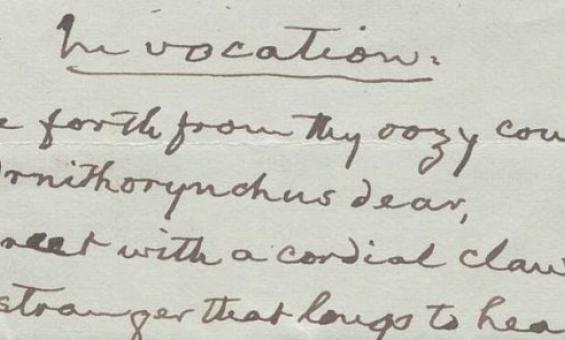 Invocation.
forth from thy oozy
Ornithorynchus dear,
with a cordial claw
stranger that longs to